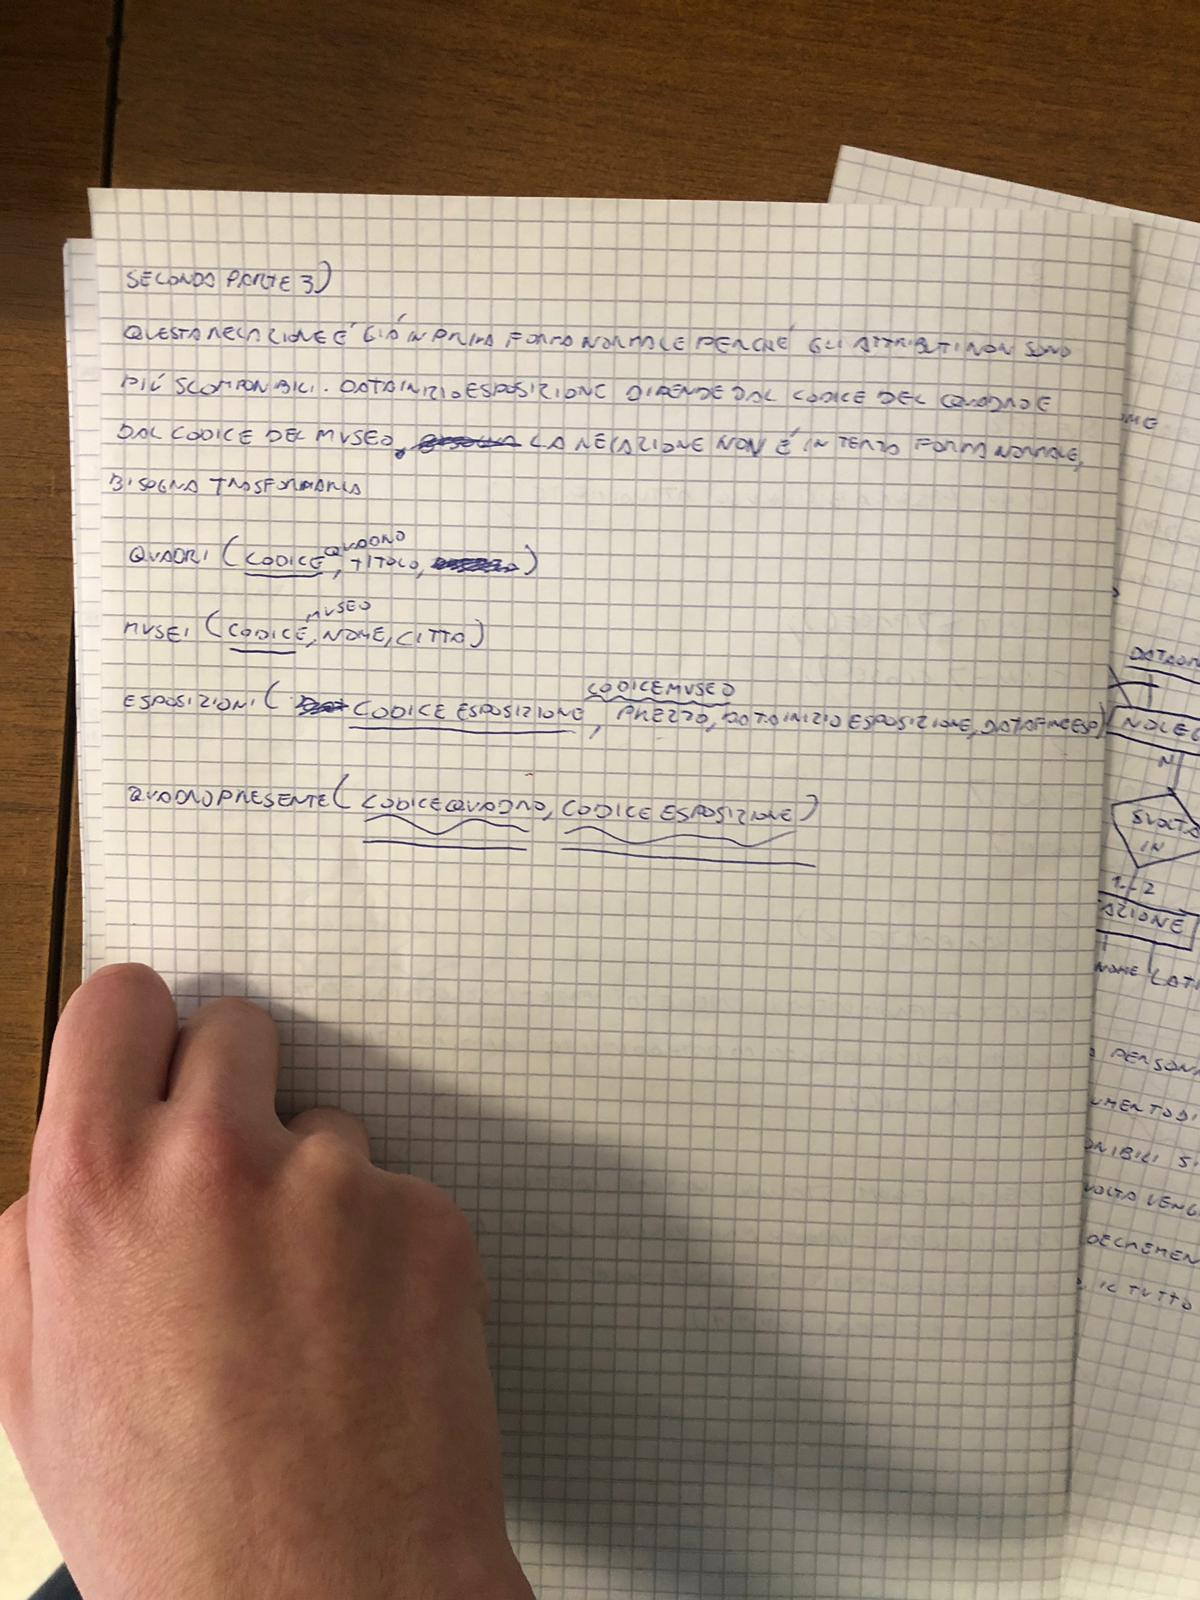 SECONDA PARTE 3)
QUESTA RELAZIONE É GIÁ IN PRIMA FORMA NORMALE PERCHÉ GLI ATTRIBUTI NON SONO
PIÚ SCOMPONIBILI. DATAINIZIOESPOSIZIONE DIPENDE DAL CODICE DEL QUADRO E
DAL CODICE DEL MUSEO, LA RELAZIONE NON É IN TERZA FORMA NORMALE,
BISOGNA TRASFORMARLA
QUADRI (CODICEQUADRO, TITOLO, )
MUSEI (CODICEMUSEO, NOME, CITTA)
ESPOSIZIONI ( CODICE ESPOSIZIONE, CODICEMUSEO PREZZO, DATAINIZIO ESPOSIZIONE, DATAFINEESP)
QUADROPRESENTE(CODICEQUADRO, CODICE ESPOSIZIONE)
OME
NOLEG
N
SVOLTA
IN
1..2
AZIONE
NOME LATI
PERSONA
UMENTODI
ONIBILI SI
VOLTA VENG
DECREMEN
IL TUTTO